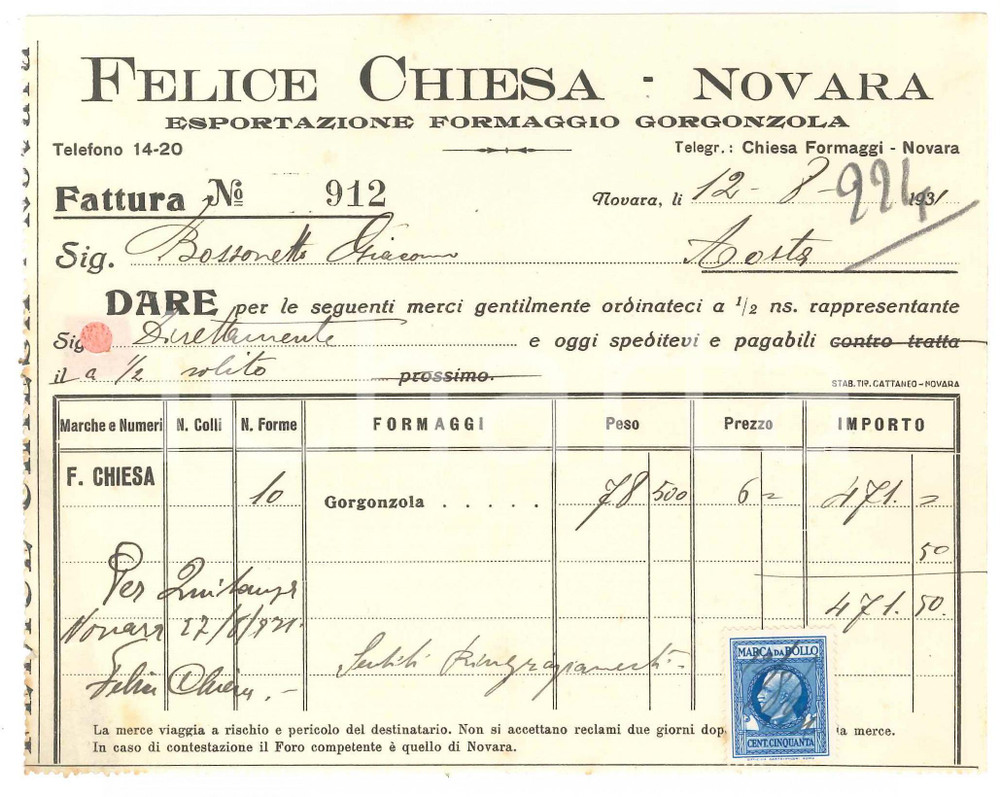 FELICE CHIESA - NOVARA
ESPORTAZIONE FORMAGGIO GORGONZOLA
Telefono 14-20
Telegr.: Chiesa Formaggi - Novara
Fattura No 912
Novara, li 12 - 8 - 1931
924
Sig. Bossonetto Giacomo Aosta
DARE per le seguenti merci gentilmente ordinateci a 1/2 ns. rappresentante
Sig. Direttamente e oggi speditevi e pagabili contro tratta
il a 1/2 solito prossimo.
STAB. TIP. CATTANEO - NOVARA
Marche e Numeri N. Colli N. Forme FORMAGGI Peso Prezzo IMPORTO
F. CHIESA
10 Gorgonzola . . . . . 78 500 6 = 471. =
50
Per Quitanza 471. 50.
Novara 17/8/931.
Felice Chiesa. -
Sentiti Ringraziamenti -
MARCA DA BOLLO
CENT. CINQUANTA
La merce viaggia a rischio e pericolo del destinatario. Non si accettano reclami due giorni dop la merce.
In caso di contestazione il Foro competente è quello di Novara.